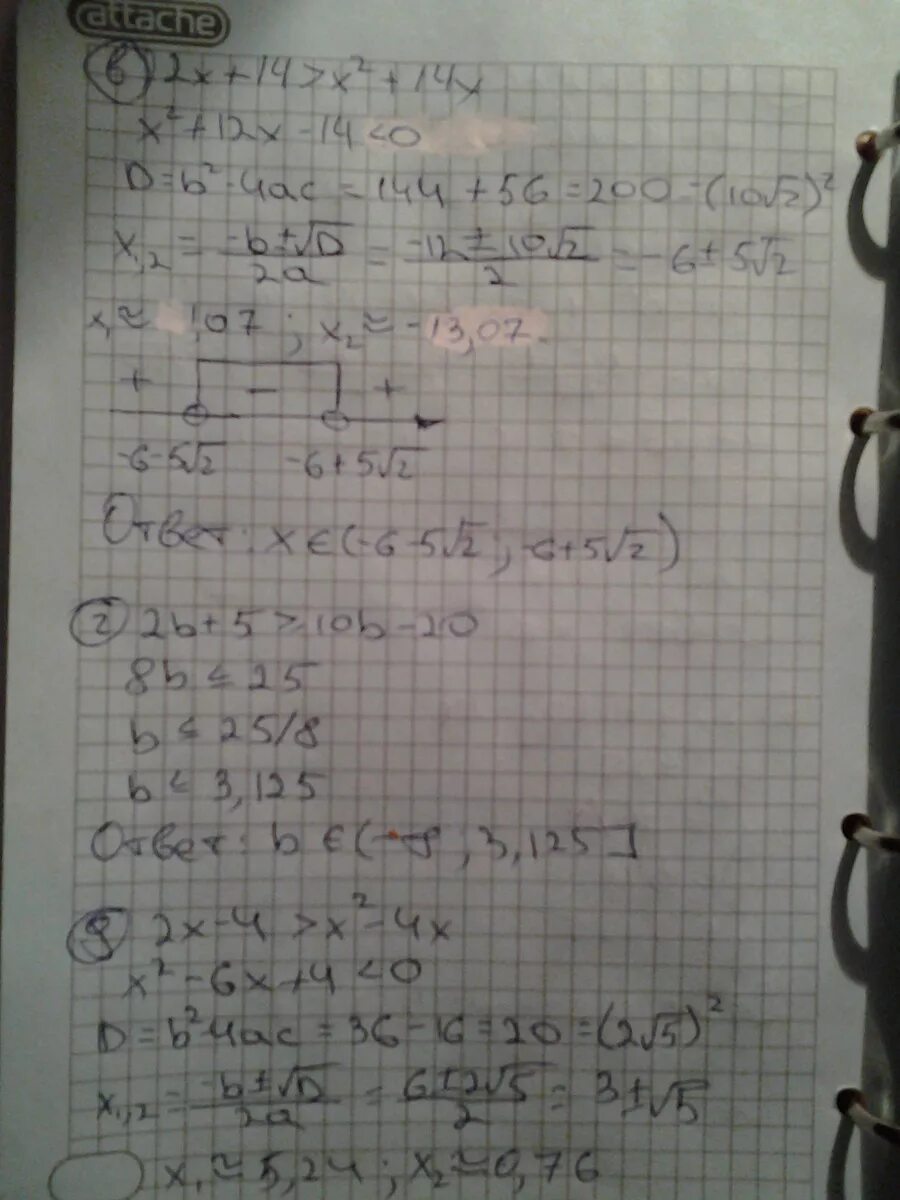 attache
в) 2x+14>x²+14x
x²+12x-14<0
D=b²-4ac=144+56=200=(10√2)²
x₁,₂ = (-b±√D)/2a = (-12±10√2)/2 = -6±5√2
x₁≈1,07 ; x₂≈-13,07
+ - +
-6-5√2 -6+5√2
Ответ: x∈(-6-5√2; -6+5√2)
г) 2b+5≥10b-20
8b≤25
b≤25/8
b≤3,125
Ответ: b∈(-∞; 3,125]
д) 2x-4>x²-4x
x²-6x+4<0
D=b²-4ac=36-16=20=(2√5)²
x₁,₂ = (-b±√D)/2a = (6±2√5)/2 = 3±√5
x₁≈5,24; x₂≈0,76